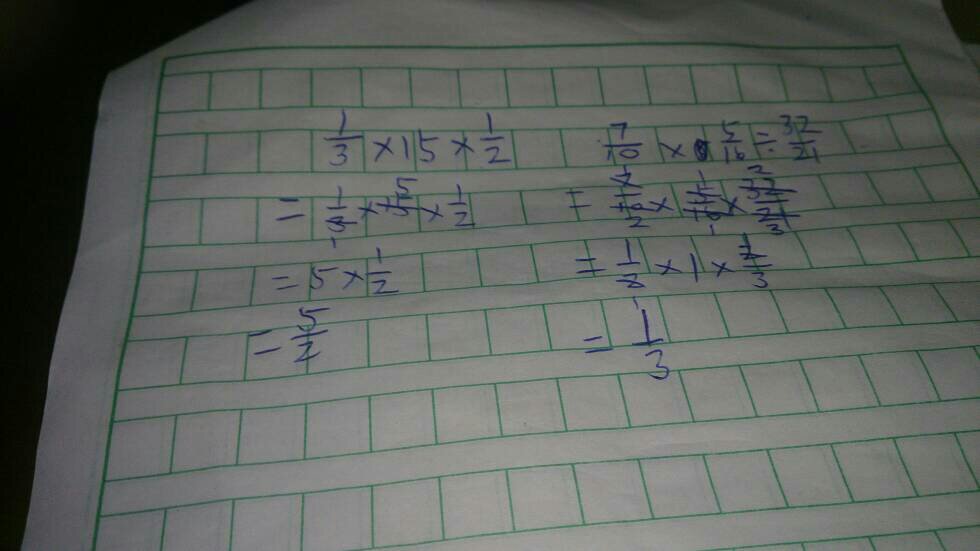 1/3 × 15 × 1/2
= 1/3 × 15 × 1/2
= 5 × 1/2
= 5/2
7/10 × 5/16 ÷ 32/21
= 7/10 × 5/16 × 32/21
= 1/2 × 1 × 2/3
= 1/3